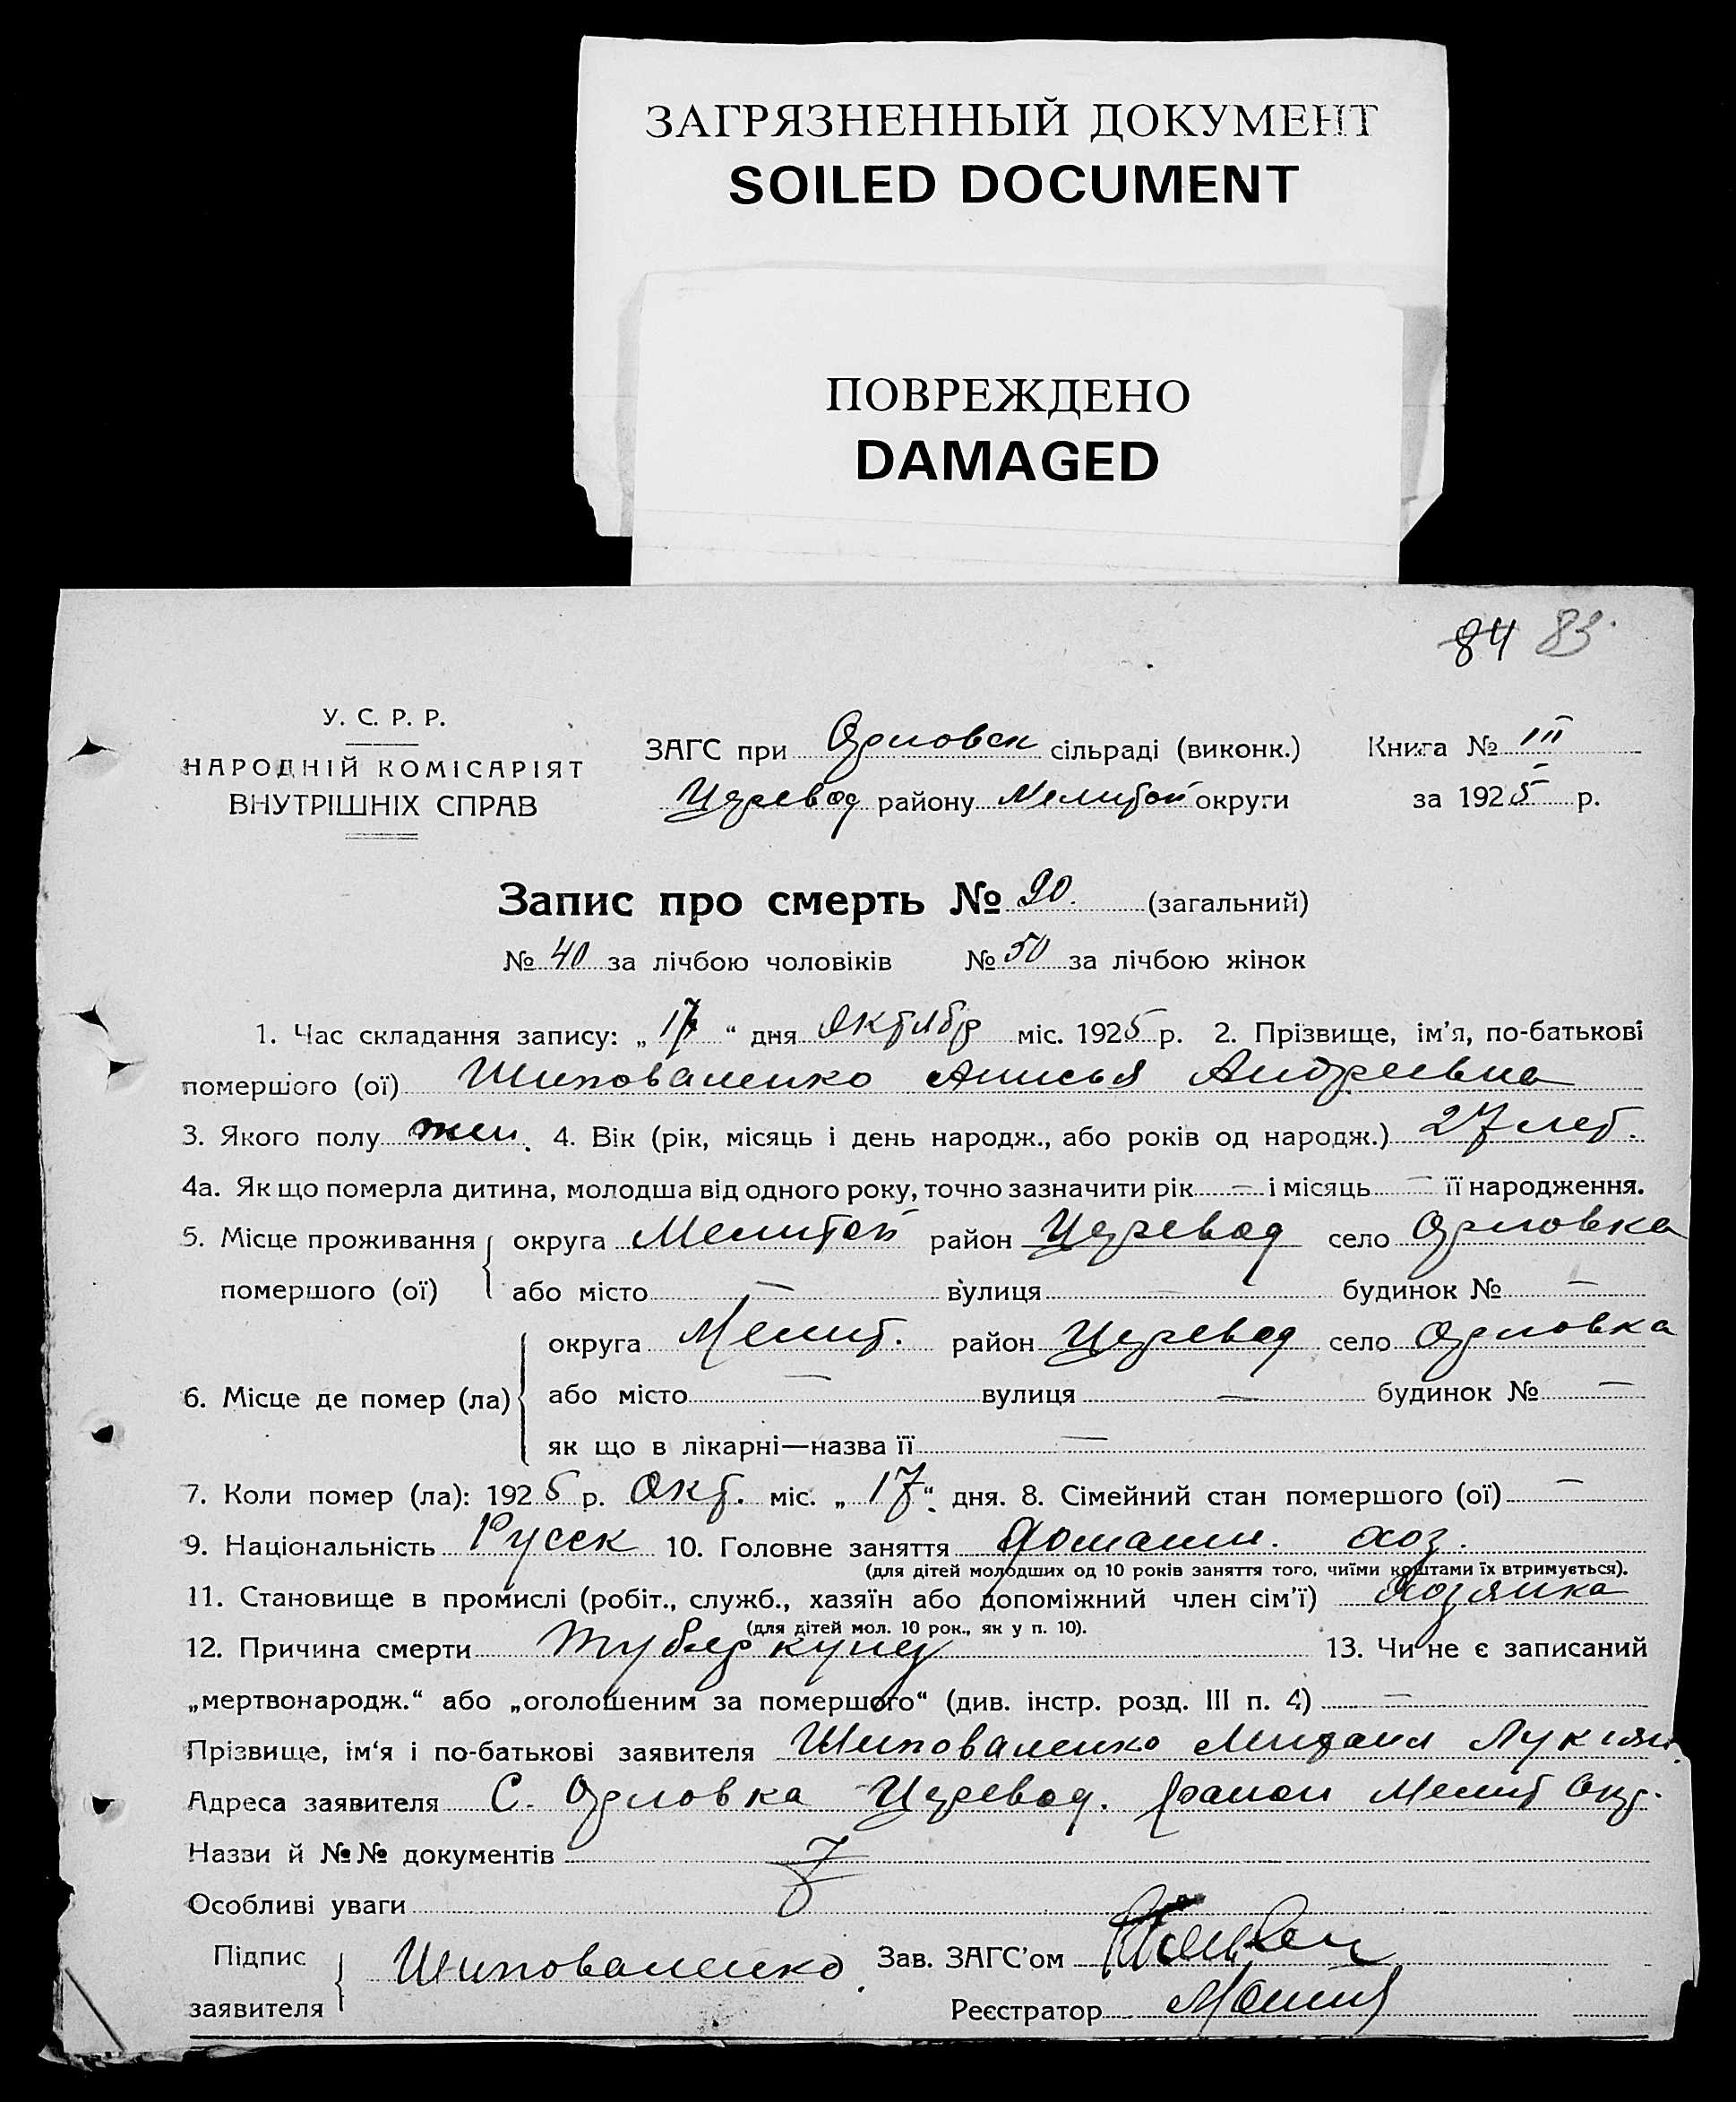 ЗАГРЯЗНЕННЫЙ ДОКУМЕНТ
SOILED DOCUMENT
ПОВРЕЖДЕНО
DAMAGED
84 83
У. С. Р. Р.
НАРОДНІЙ КОМІСАРІЯТ
ВНУТРІШНІХ СПРАВ
ЗАГС при Орловск сільраді (виконк.)
Церевод району Мелитоп округи
Книга № III
за 1925 р.
Запис про смерть № 90. (загальний)
№ 40 за лічбою чоловіків № 50 за лічбою жінок
1. Час складання запису: „17“ дня Октябр міс. 1925 р. 2. Прізвище, ім'я, по-батькові
помершого (ої) Шиповаленко Анисья Андреевна
3. Якого полу жен. 4. Вік (рік, місяць і день народж., або років од народж.) 27 лет.
4а. Як що померла дитина, молодша від одного року, точно зазначити рік — і місяць — її народження.
5. Місце проживання округа Мелитоп район Церевод село Орловка
помершого (ої) або місто — вулиця — будинок № —
округа Мелит. район Церевод село Орловка
6. Місце де помер (ла) або місто — вулиця — будинок № —
як що в лікарні—назва її —
7. Коли помер (ла): 1925 р. Окт. міс. „17“ дня. 8. Сімейний стан помершого (ої) —
9. Національність Русск 10. Головне заняття Домашн. хоз.
(для дітей молодших од 10 років заняття того, чиїми коштами їх втримується).
11. Становище в промислі (робіт., служб., хазяїн або допоміжний член сім'ї) хозяйка
(для дітей мол. 10 рок., як у п. 10).
12. Причина смерти Туберкулез 13. Чи не є записаний
„мертвонародж.“ або „оголошеним за помершого“ (див. інстр. розд. III п. 4) —
Прізвище, ім'я і по-батькові заявителя Шиповаленко Михаил Лукиян.
Адреса заявителя С. Орловка Церевод. район Мелит Окр.
Назви й №№ документів
Особливі уваги
Підпис
заявителя Шиповаленко
Зав. ЗАГС'ом
Реєстратор